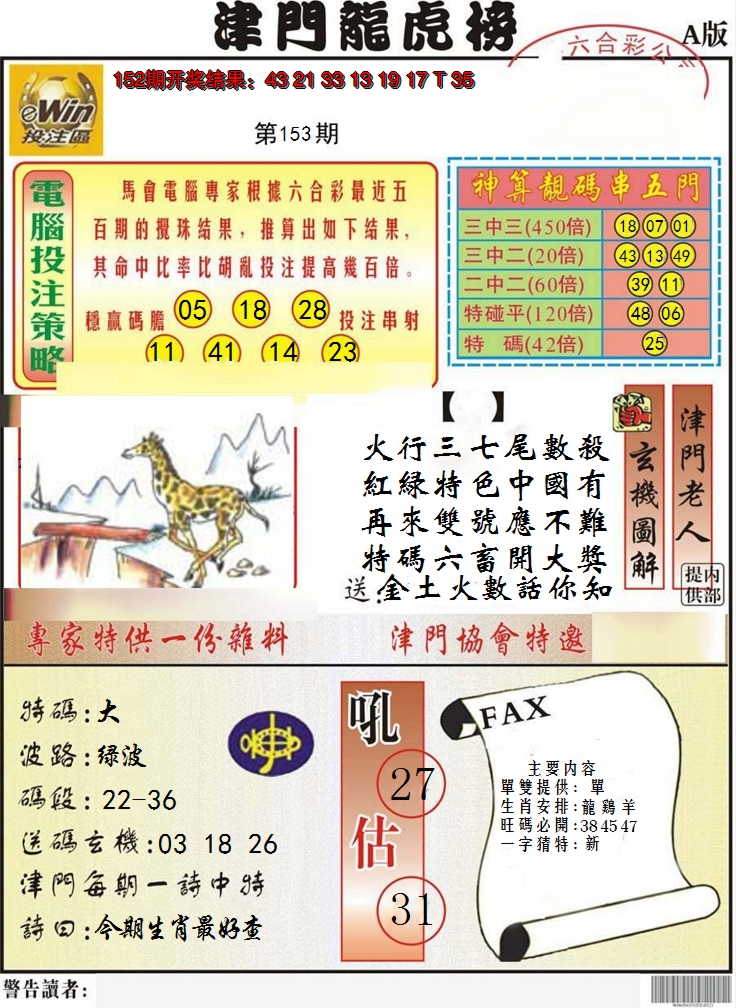 津門龍虎榜
A版
六合彩公
eWin
投注區
152期开奖结果：43 21 33 13 19 17 T 35
第153期
電腦投注策略
馬會電腦專家根據六合彩最近五
百期的攪珠结果，推算出如下结果，
其命中比率比胡亂投注提高幾百倍。
穩贏碼膽 05 18 28 投注串射
11 41 14 23
神算靚碼串五門
三中三(450倍) 18 07 01
三中二(20倍) 43 13 49
二中二(60倍) 39 11
特碰平(120倍) 48 06
特 碼(42倍) 25
【 】
火行三七尾數殺
紅綠特色中國有
再來雙號應不難
特碼六畜開大獎
送:金土火數話你知
玄機圖解
津門老人
内部提供
專家特供一份雜料
津門協會特邀
特碼:大
波路:绿波
碼段:22-36
送碼玄機:03 18 26
津門每期一詩中特
詩曰:今期生肖最好查
吼
27
估
31
FAX
主要内容
單雙提供：單
生肖安排:龍鷄羊
旺碼必開:38 45 47
一字猜特:新
警告讀者: